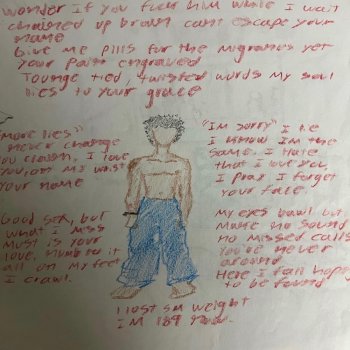 wonder If you fuck him while I wait
chained up brown cant escape your
name
Give me pills for the migranes yet
your pain engraved
Tounge tied, twisted words my soul
lies to your grace
"more lies"
never change
you claim, I love
you, on my wrist
your name
Good sex, but
what I miss
must is your
love, numb to it
all on my feet
I crawl.
"Im sorry" I lie
I know Im the
same. I Hate
that I love you
I pray I forget
your face.
My eyes bawl but
make no sound
no missed calls
you're never
around
Here I fall hoping
to be found
I lost sm weight
IM 189 now.